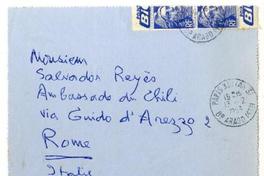 Monsieur
Salvador Reyès
Ambassade du Chili
via Guido d'Arezzo 2
Rome
Italie